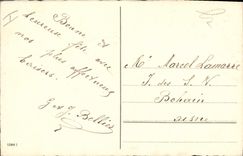 Bonne et
heureuse fête avec
nos plus affectueux
baisers.
Bellier
Mr Marcel Lamarre
J. des S. N.
Bohain
Aisne